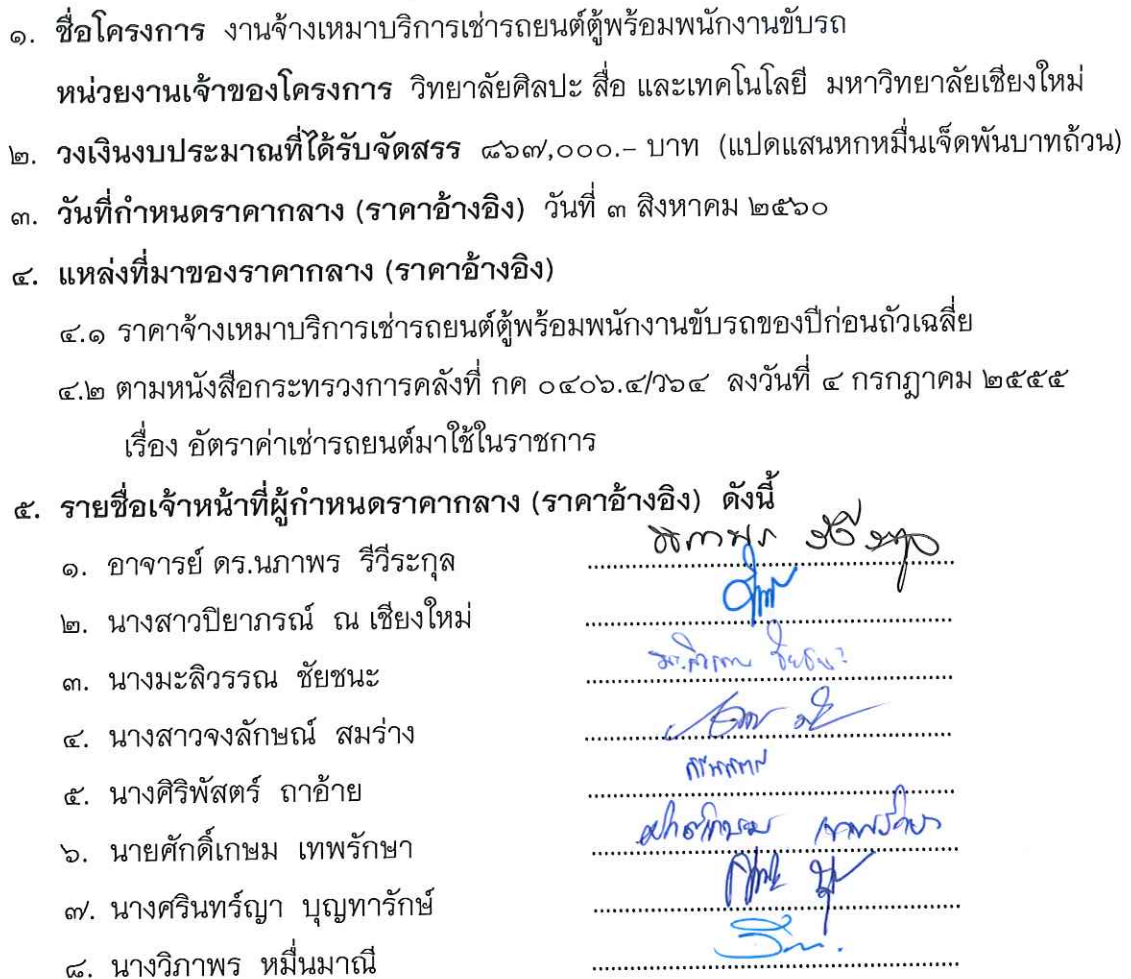 ๑. ชื่อโครงการ งานจ้างเหมาบริการเช่ารถยนต์ตู้พร้อมพนักงานขับรถ
หน่วยงานเจ้าของโครงการ วิทยาลัยศิลปะ สื่อ และเทคโนโลยี มหาวิทยาลัยเชียงใหม่
๒. วงเงินงบประมาณที่ได้รับจัดสรร ๘๖๗,๐๐๐.- บาท (แปดแสนหกหมื่นเจ็ดพันบาทถ้วน)
๓. วันที่กำหนดราคากลาง (ราคาอ้างอิง) วันที่ ๓ สิงหาคม ๒๕๖๐
๔. แหล่งที่มาของราคากลาง (ราคาอ้างอิง)
๔.๑ ราคาจ้างเหมาบริการเช่ารถยนต์ตู้พร้อมพนักงานขับรถของปีก่อนถัวเฉลี่ย
๔.๒ ตามหนังสือกระทรวงการคลังที่ กค ๐๔๐๖.๔/ว๖๔ ลงวันที่ ๔ กรกฎาคม ๒๕๕๕
เรื่อง อัตราค่าเช่ารถยนต์มาใช้ในราชการ
๕. รายชื่อเจ้าหน้าที่ผู้กำหนดราคากลาง (ราคาอ้างอิง) ดังนี้
๑. อาจารย์ ดร.นภาพร รีวีระกุล
๒. นางสาวปิยาภรณ์ ณ เชียงใหม่
๓. นางมะลิวรรณ ชัยชนะ
๔. นางสาวจงลักษณ์ สมร่าง
๕. นางศิริพัสตร์ ถาอ้าย
๖. นายศักดิ์เกษม เทพรักษา
๗. นางศรินทร์ญา บุญทารักษ์
๘. นางวิภาพร หมื่นมาณี